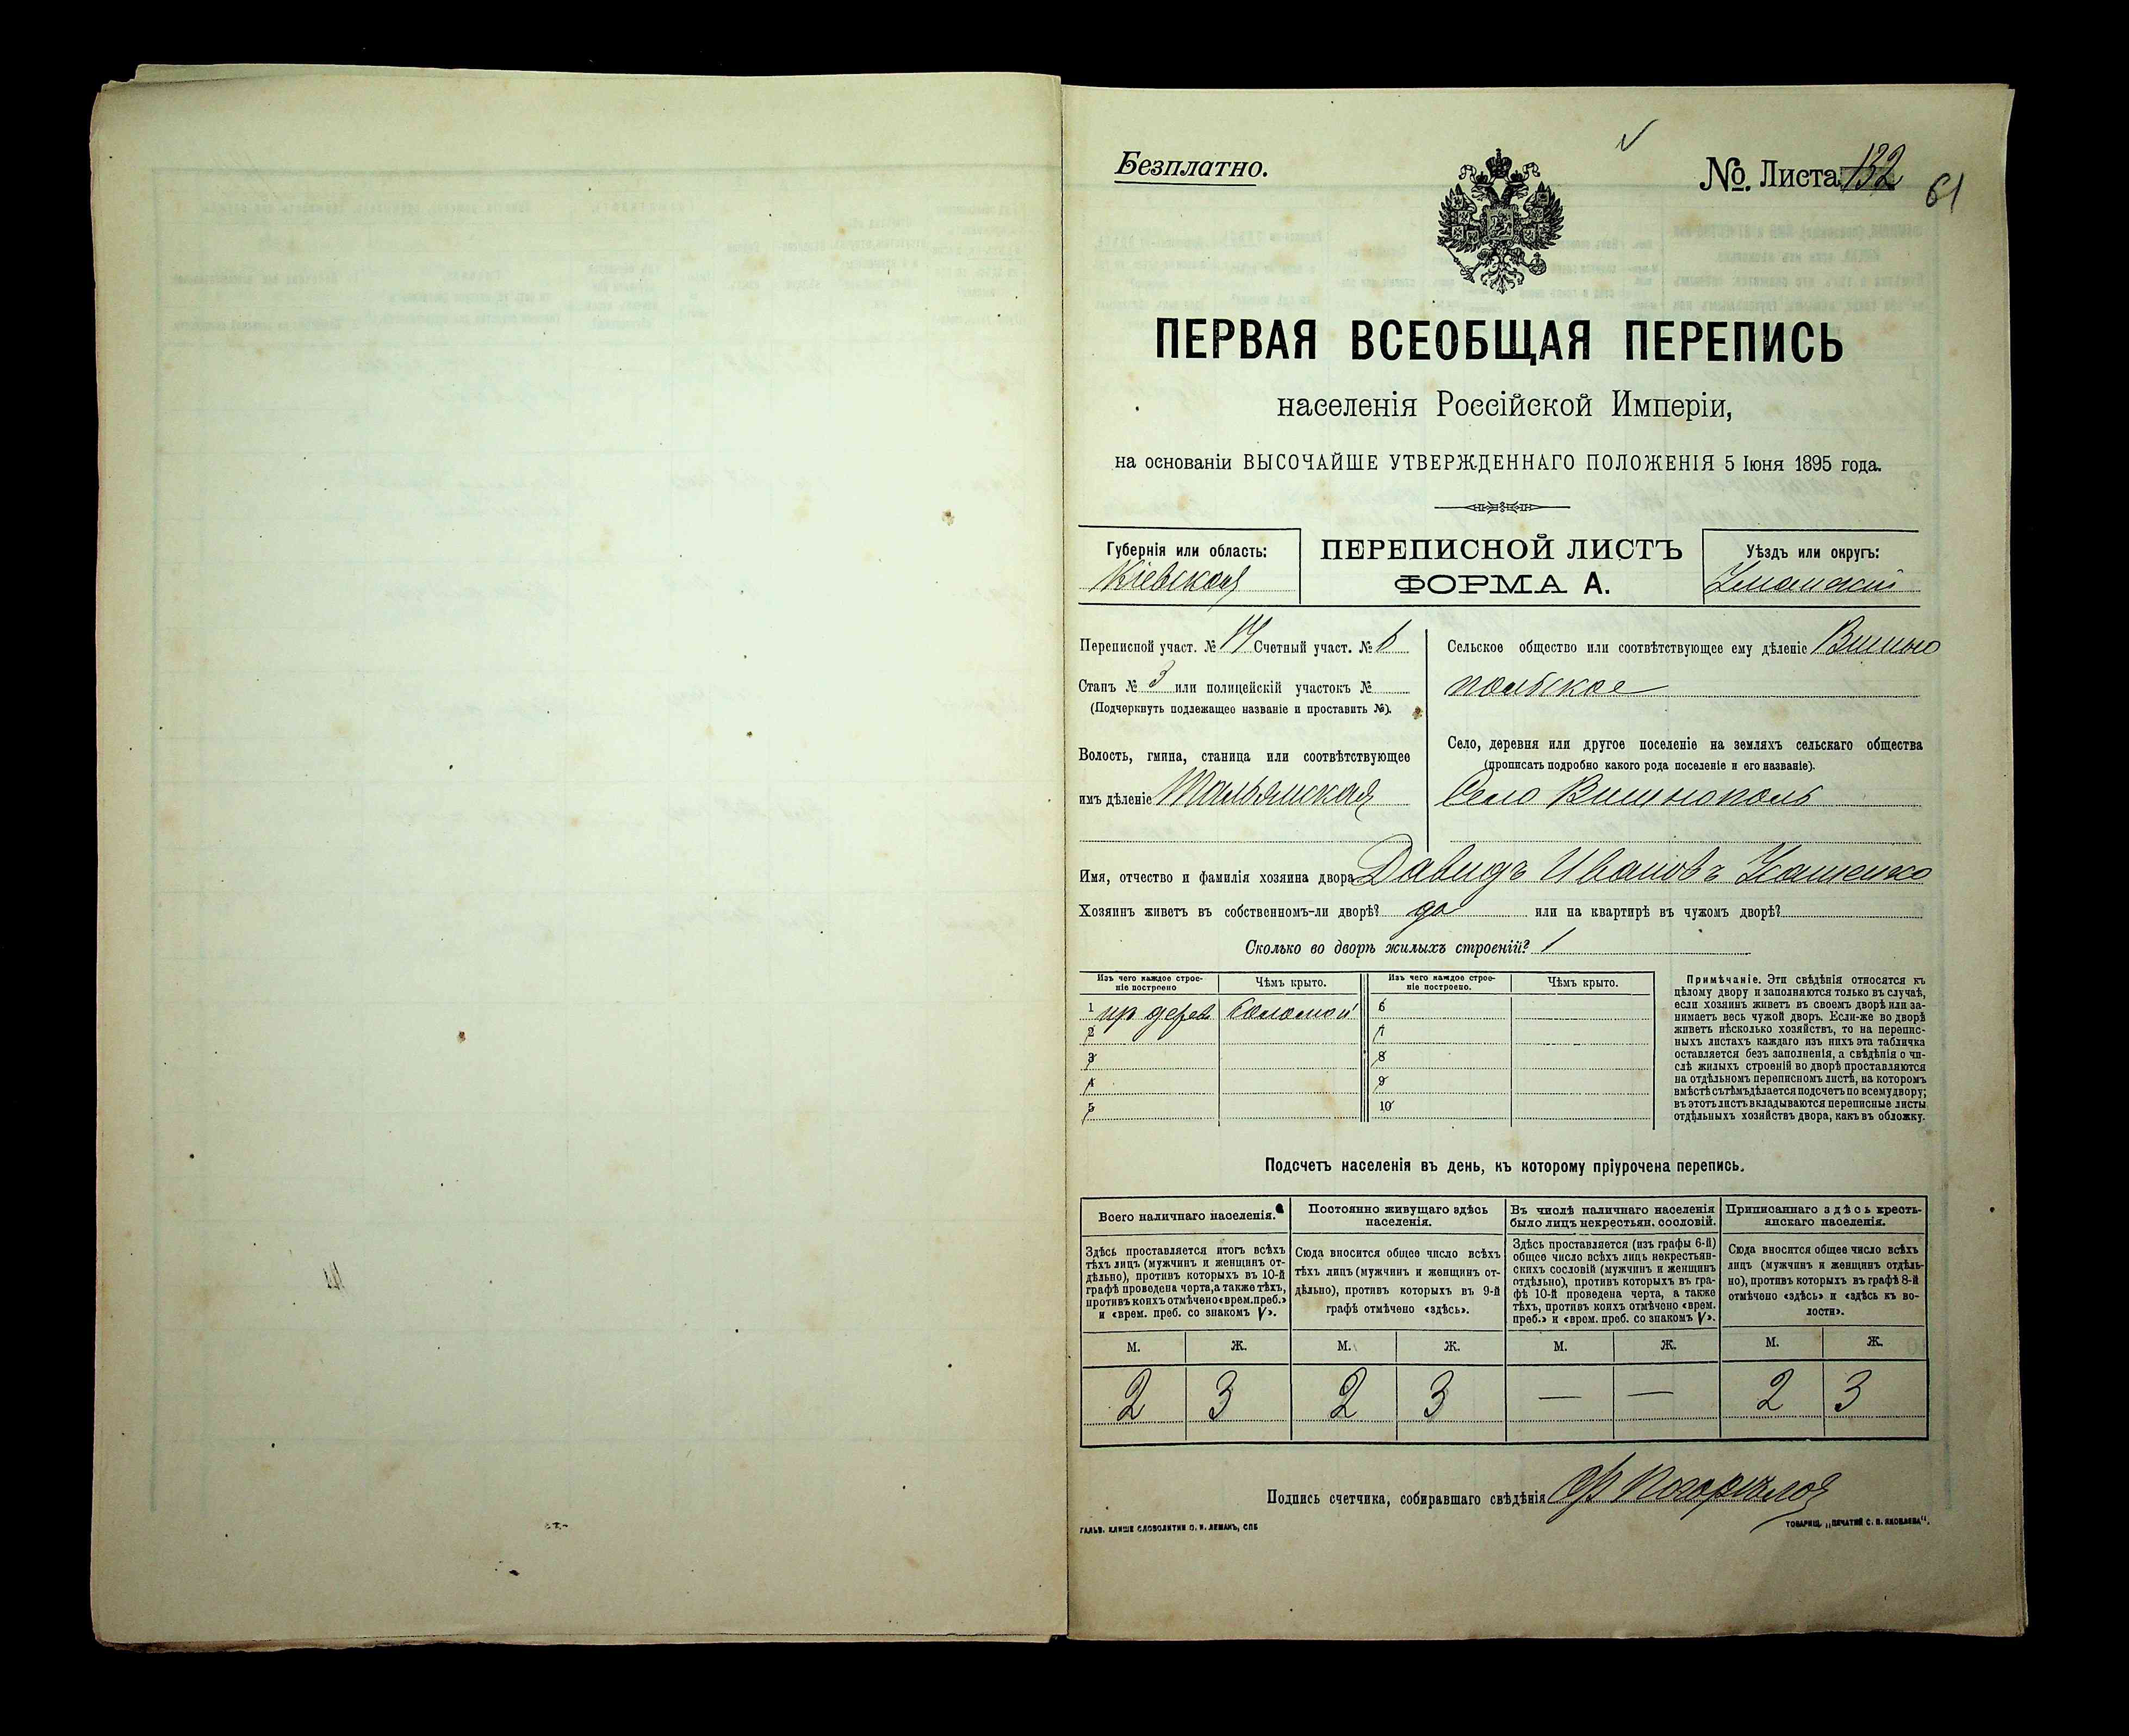 Безплатно.
№. Листа 132
61
ПЕРВАЯ ВСЕОБЩАЯ ПЕРЕПИСЬ
населенія Россійской Имперіи,
на основаніи ВЫСОЧАЙШЕ УТВЕРЖДЕННАГО ПОЛОЖЕНІЯ 5 Іюня 1895 года.
Губернія или область:
Кіевская
ПЕРЕПИСНОЙ ЛИСТЪ
ФОРМА А.
Уѣздъ или округъ:
Уманскій
Переписной участ. № 14 Счетный участ. № 6
Станъ № 3 или полицейскій участокъ №
(Подчеркнуть подлежащее названіе и проставить №).
Волость, гмина, станица или соотвѣтствующее
имъ дѣленіе Тальянская
Сельское общество или соотвѣтствующее ему дѣленіе Вишно
польское
Село, деревня или другое поселеніе на земляхъ сельскаго общества
(прописать подробно какого рода поселеніе и его названіе).
Село Вишнополь
Имя, отчество и фамилія хозяина двора Давидъ Ивановъ
Хозяинъ живетъ въ собственномъ-ли дворѣ? да или на квартирѣ въ чужомъ дворѣ?
Сколько во дворѣ жилыхъ строеній? 1
Изъ чего каждое строе-
ніе построено
Чѣмъ крыто.
Изъ чего каждое строе-
ніе построено.
Чѣмъ крыто.
1 дерев соломой 6
2 7
3 8
4 9
5 10
Примѣчаніе. Эти свѣдѣнія относятся къ
цѣлому двору и заполняются только въ случаѣ,
если хозяинъ живетъ въ своемъ дворѣ или за-
нимаетъ весь чужой дворъ. Если-же во дворѣ
живетъ нѣсколько хозяйствъ, то на перепис-
ныхъ листахъ каждаго изъ нихъ эта табличка
оставляется безъ заполненія, а свѣдѣнія о чи-
слѣ жилыхъ строеній во дворѣ проставляются
на отдѣльномъ переписномъ листѣ, на которомъ
вмѣстѣ съ тѣмъ дѣлается подсчетъ по всему двору;
въ этотъ листъ вкладываются переписные листы
отдѣльныхъ хозяйствъ двора, какъ въ обложку.
Подсчетъ населенія въ день, къ которому пріурочена перепись.
Всего наличнаго населенія.
Здѣсь проставляется итогъ всѣхъ
тѣхъ лицъ (мужчинъ и женщинъ от-
дѣльно), противъ которыхъ въ 10-й
графѣ проведена черта, а также тѣхъ,
противъ коихъ отмѣчено «врем. преб.»
и «врем. преб. со знакомъ V».
Постоянно живущаго здѣсь
населенія.
Сюда вносится общее число всѣхъ
тѣхъ лицъ (мужчинъ и женщинъ от-
дѣльно), противъ которыхъ въ 9-й
графѣ отмѣчено «здѣсь».
Въ числѣ наличнаго населенія
было лицъ некрестьян. сословій.
Здѣсь проставляется (изъ графы 6-й)
общее число всѣхъ лицъ некрестьян-
скихъ сословій (мужчинъ и женщинъ
отдѣльно), противъ которыхъ въ гра-
фѣ 10-й проведена черта, а также
тѣхъ, противъ коихъ отмѣчено «врем.
преб.» и «врем. преб. со знакомъ V».
Приписаннаго здѣсь кресть-
янскаго населенія.
Сюда вносится общее число всѣхъ
лицъ (мужчинъ и женщинъ отдѣль-
но), противъ которыхъ въ графѣ 8-й
отмѣчено «здѣсь» и «здѣсь къ во-
лости».
М. Ж. М. Ж. М. Ж. М. Ж.
2 3 2 3 — — 2 3
Подпись счетчика, собиравшаго свѣдѣнія
ГАЛЬВ. КЛИШЕ СЛОВОЛИТНИ О. И. ЛЕМАНЪ, СПБ
ТОВАРИЩ. „ПЕЧАТНЯ С. П. ЯКОВЛЕВА".